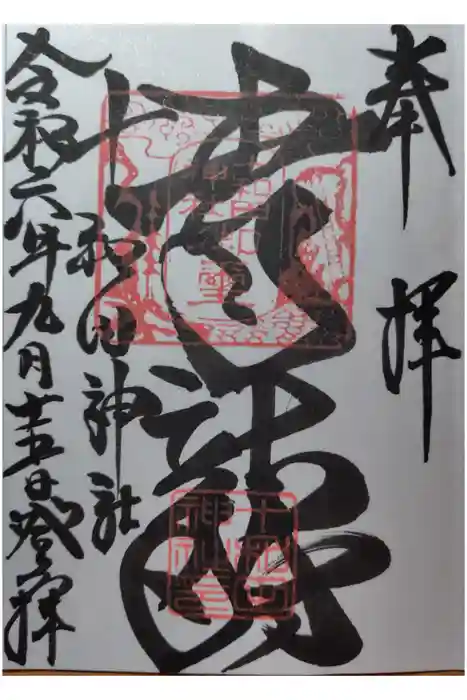 奉拝
青龍
十和田神社
令和六年九月十五日登拝